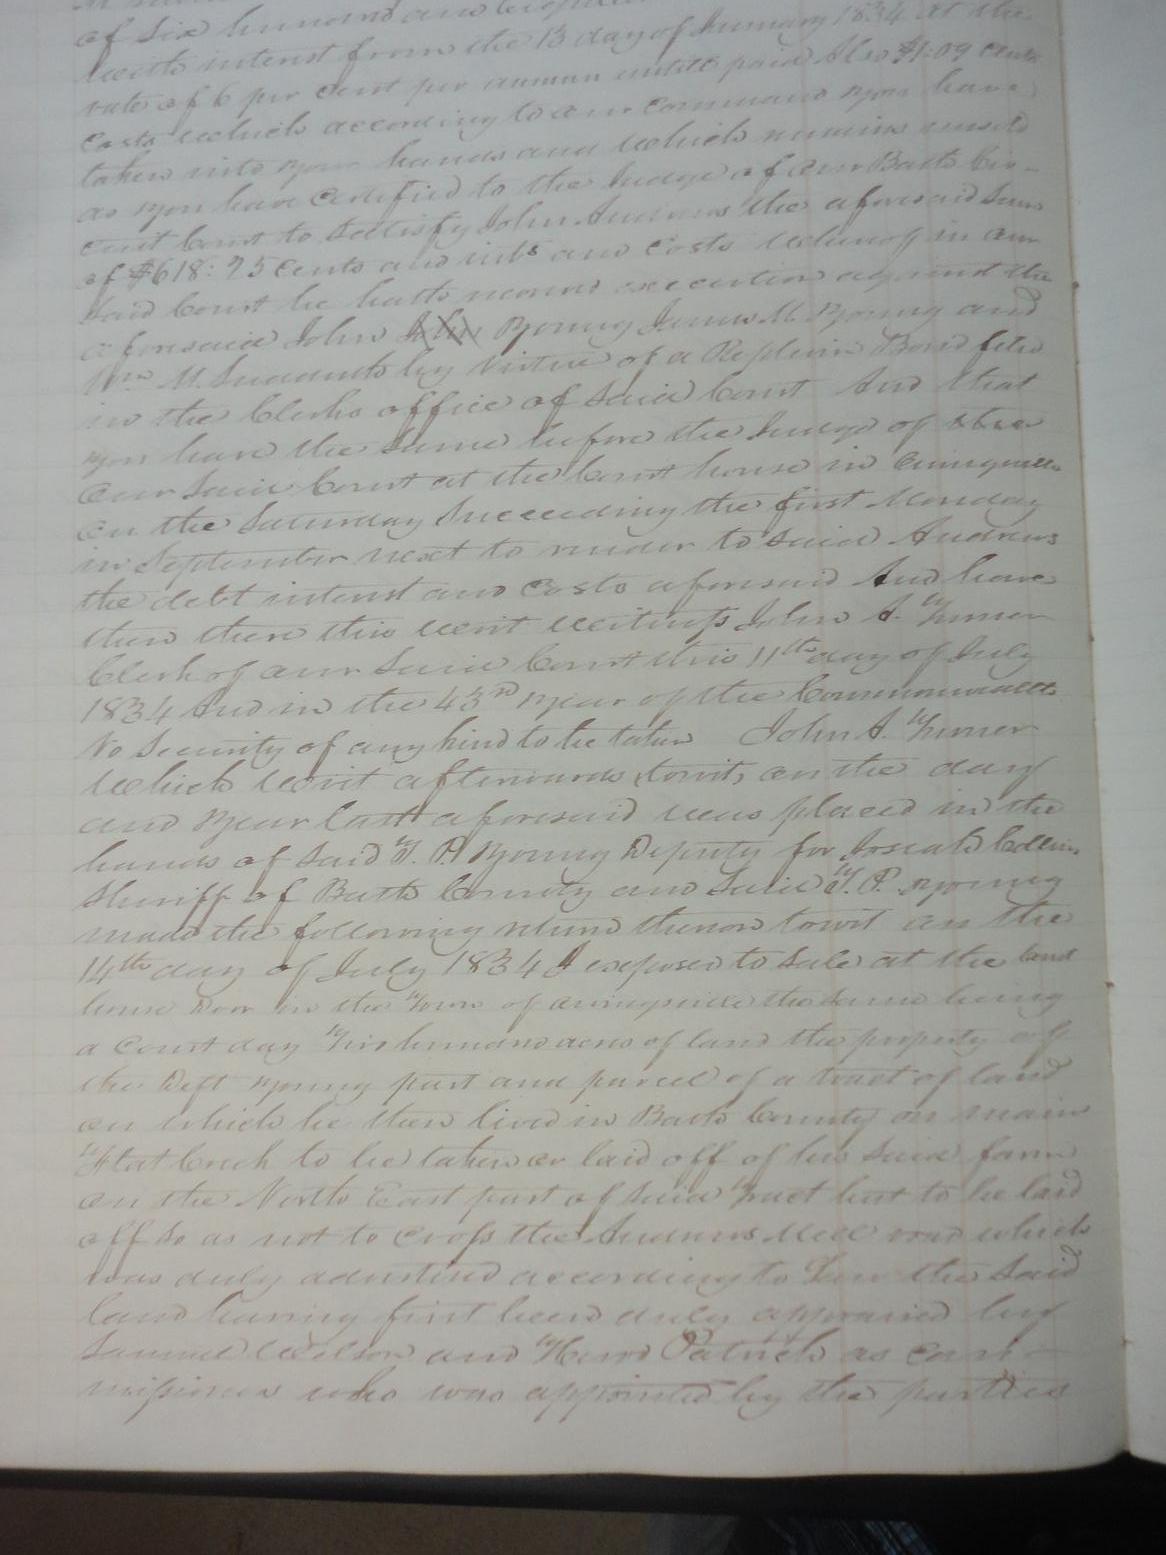 of Six hundred and
with interest from the 13 day of January 1834 at the
rate of 6 per cent per annum untill paid Also $1.09 cents
Costs which according to our Command you have
taken into your hands and which remains unsold
as you have certified to the Judge of our Bath Cir-
cuit Court to Satisfy John Andrews the aforesaid Sum
of $618:75 Cents and ints and Costs whereof in our
said Court he hath execution against the
aforesaid John John Young James M. Young and
Wm M. Sudduth by virtue of a Replevin Bond filed
in the Clerks office of said Court And that
you have the same before the Judge of
our said Court at the Court house in Owingsville
on the Saturday Succeeding the first Monday
in September next to render to said Andrews
the debt interest and Costs aforesaid And have
then there this writ witness John A. Turner
Clerk of our Said Court this 11th day of July
1834 And in the 43rd year of the Commonwealth
No Security of any kind to be taken John A. Turner
Which writ afterwards, towit, on the day
and year last aforesaid was placed in the
hands of said T. P. Young Deputy for Josiah Collins
Sheriff of Bath County and said T. P. Young
made the following return thereon towit on the
14th day of July 1834 I exposed to Sale at the Court
house Door in the Town of Owingsville the same being
a Court day hundred acres of land the property of
the Deft Young part and parcel of a tract of land
on which he then lived in Bath County on main
Flat Creek to be taken or laid off of his said farm
on the North East part of said Tract but to be laid
off so as not to Cross the Andrews Mill road which
was duly advertised according to Law the said
land having first been duly appraised by
Samuel Wilson and Patrick as Com-
missioners who was appointed by the parties